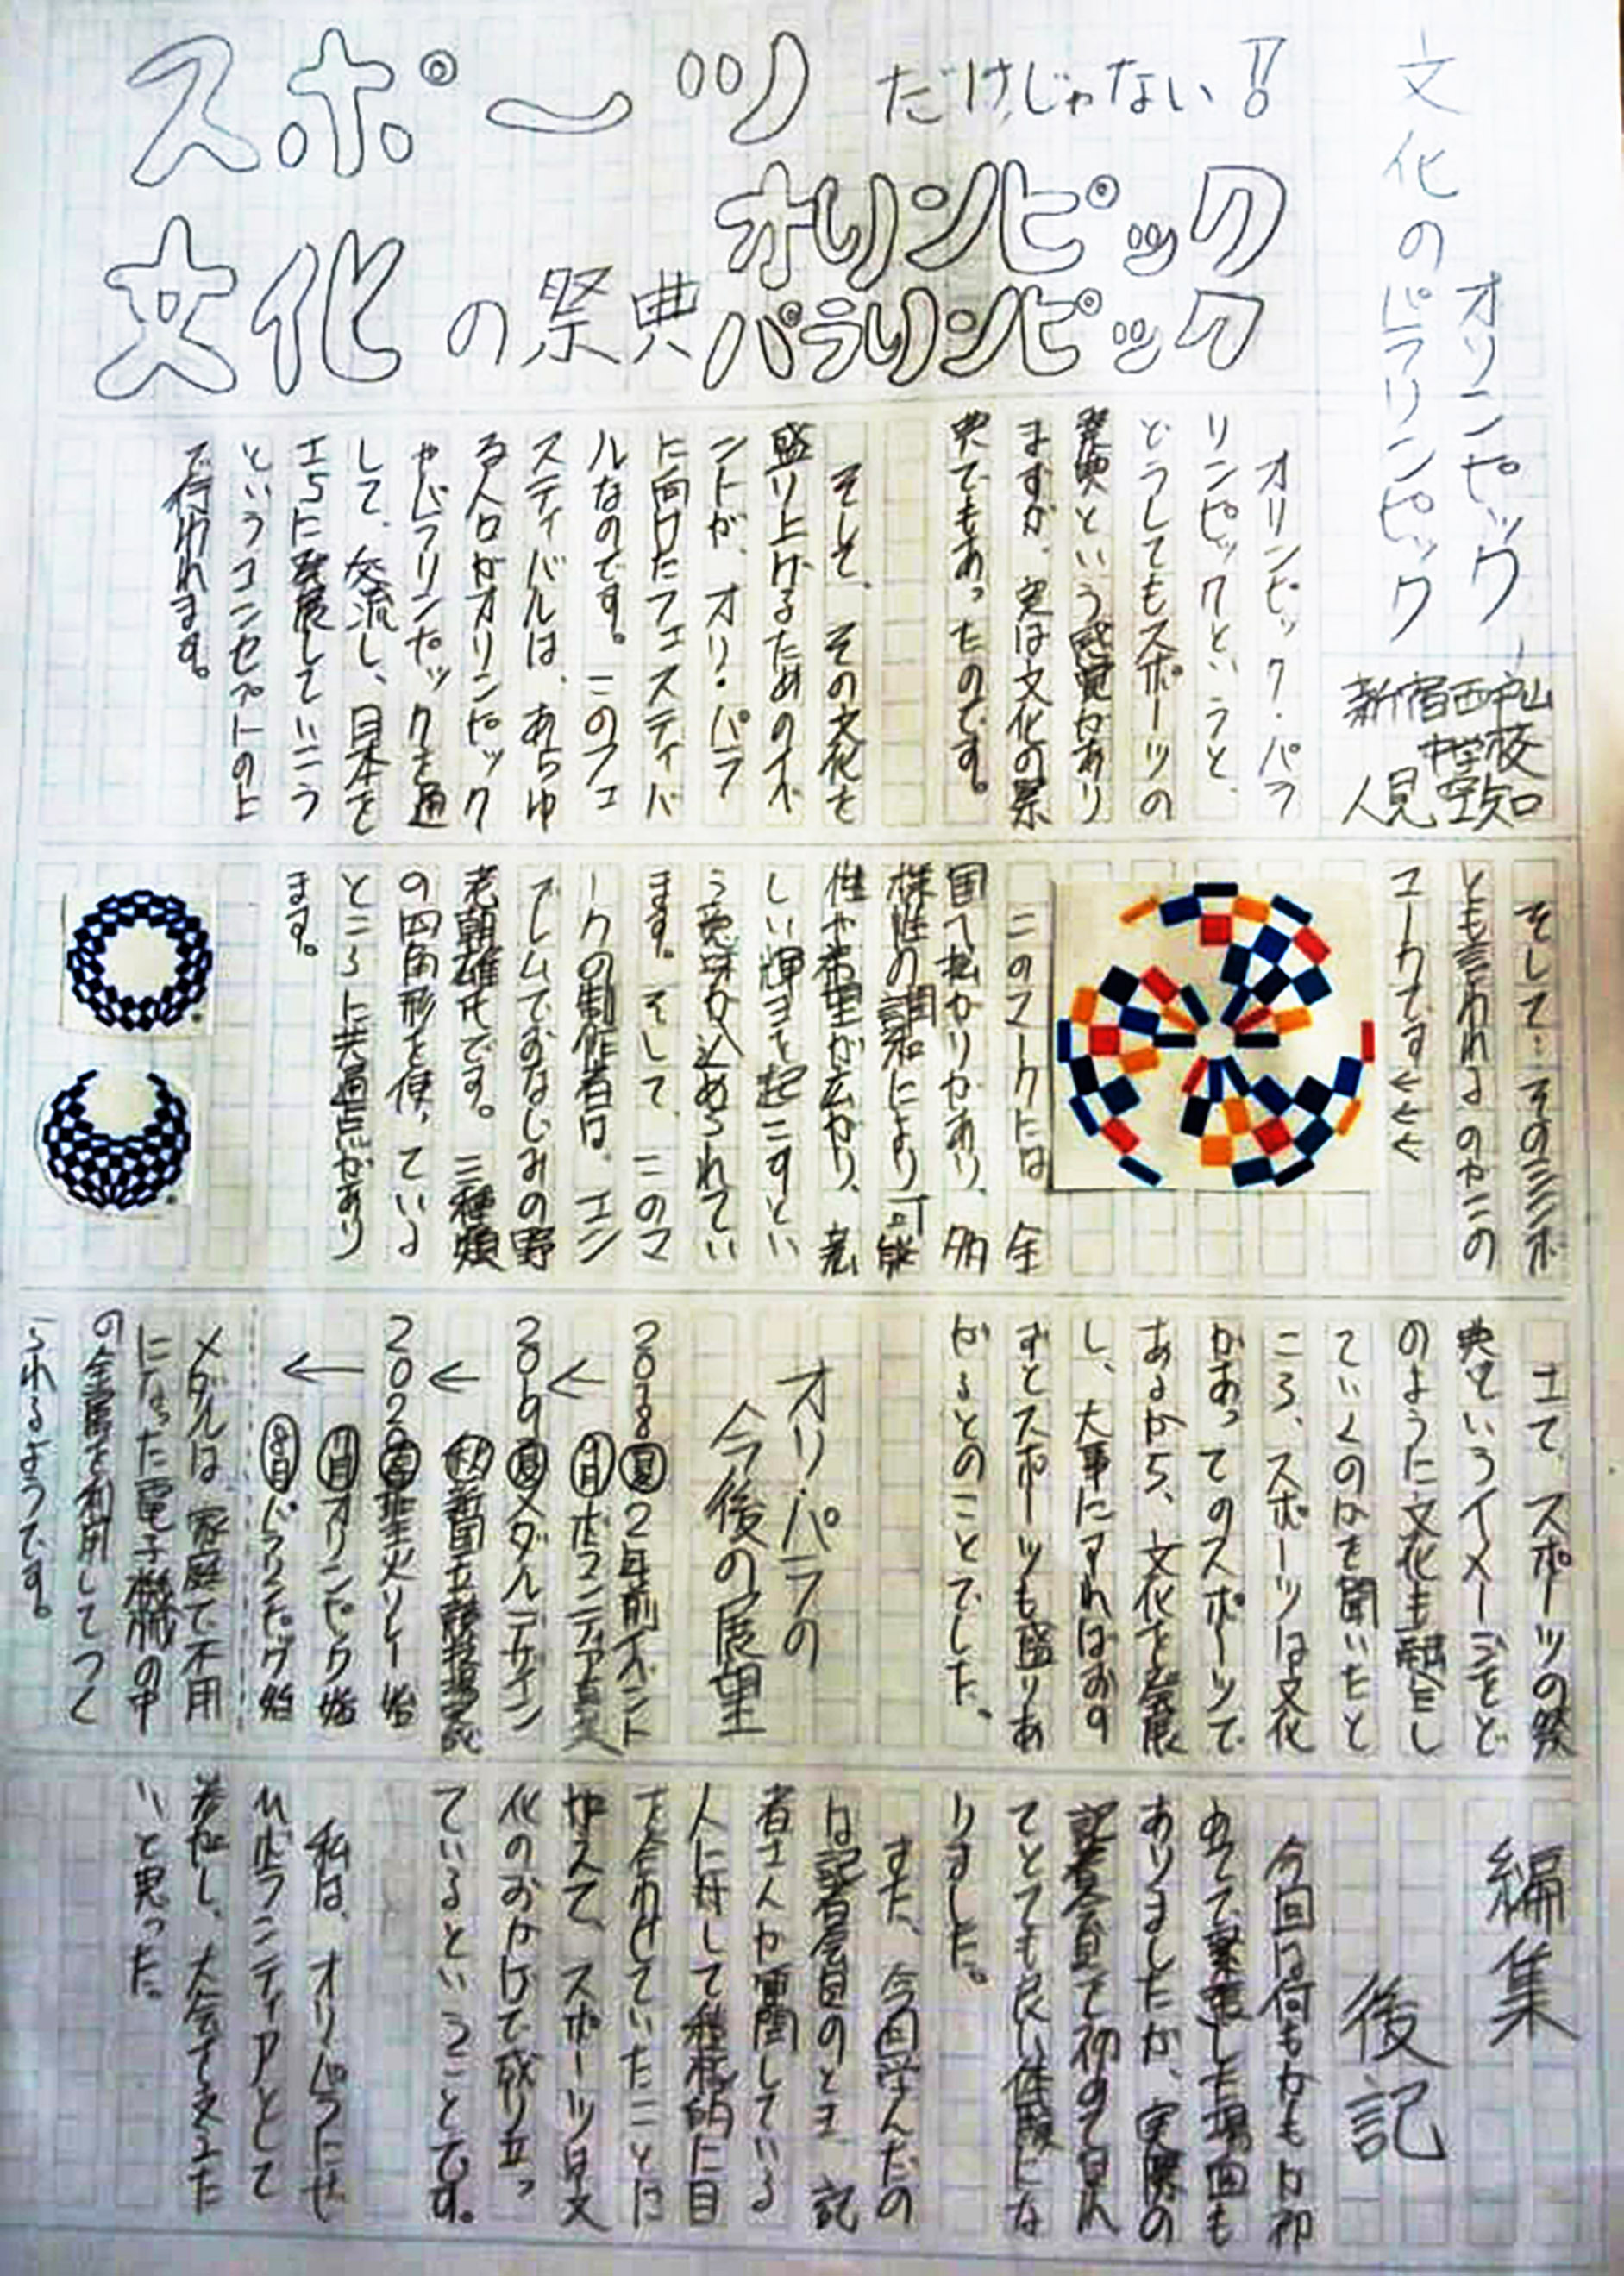 スポーツだけじゃない!!
オリンピック
パラリンピック
文化の祭典
オリンピック
文化のパラリンピック
新宿西戸山
中学校
人見
オリンピック・パラ
リンピックというと、
どうしてもスポーツの
祭典という感覚があり
ますが、実は文化の祭
典でもあったのです。
そして、その文化を
盛り上げるためのイベ
ントが、オリ・パラ
に向けたフェスティバ
ルなのです。このフェ
スティバルは、あらゆ
る人々がオリンピック
やパラリンピックを通
して、交流し、日本を
さらに発展していこう
というコンセプトの上
で行われます。
そして…そのシンボ
ルとも言われるのがこの
マークです↓↓↓
このマークには全
国へ拡がりがあり、多
様性の調和により可能
性や希望が広がり、新
しい輝きを起こすとい
う意味が込められてい
ます。そして、このマ
ークの制作者は、エン
ブレムでおなじみの野
老朝雄氏です。三種類
の四角形を使っている
ところに共通点があり
ます。
さて、スポーツの祭
典というイメージをど
のように文化も融合し
ていくのかを聞いたと
ころ、スポーツは文化
があってのスポーツで
あるから、文化を発展
し、大事にすればおの
ずとスポーツも盛りあ
がるとのことでした。
オリ・パラの
今後の展望
2018夏 2年前イベント
9月 ボランティア募集
2019夏 メダルデザイン
秋 新国立競技場完成
2020春 聖火リレー始
7月 オリンピック始
8月 パラリンピック始
メダルは、家庭で不用
になった電子機械の中
の金属を利用してつく
られるようです。
編集
後記
今回は何もかもが初
めてで緊張した場面も
ありましたが、実際の
記者会見で初めて見れ
てとても良い体験にな
りました。
また、今回学んだの
は記者会見のとき、記
者さんが質問している
人に対して積極的に目
を合わせていたことに
加えて、スポーツは文
化のおかげで成り立っ
ているということです。
私は、オリパラにぜ
ひボランティアとして
参加し、大会を支えた
いと思った。